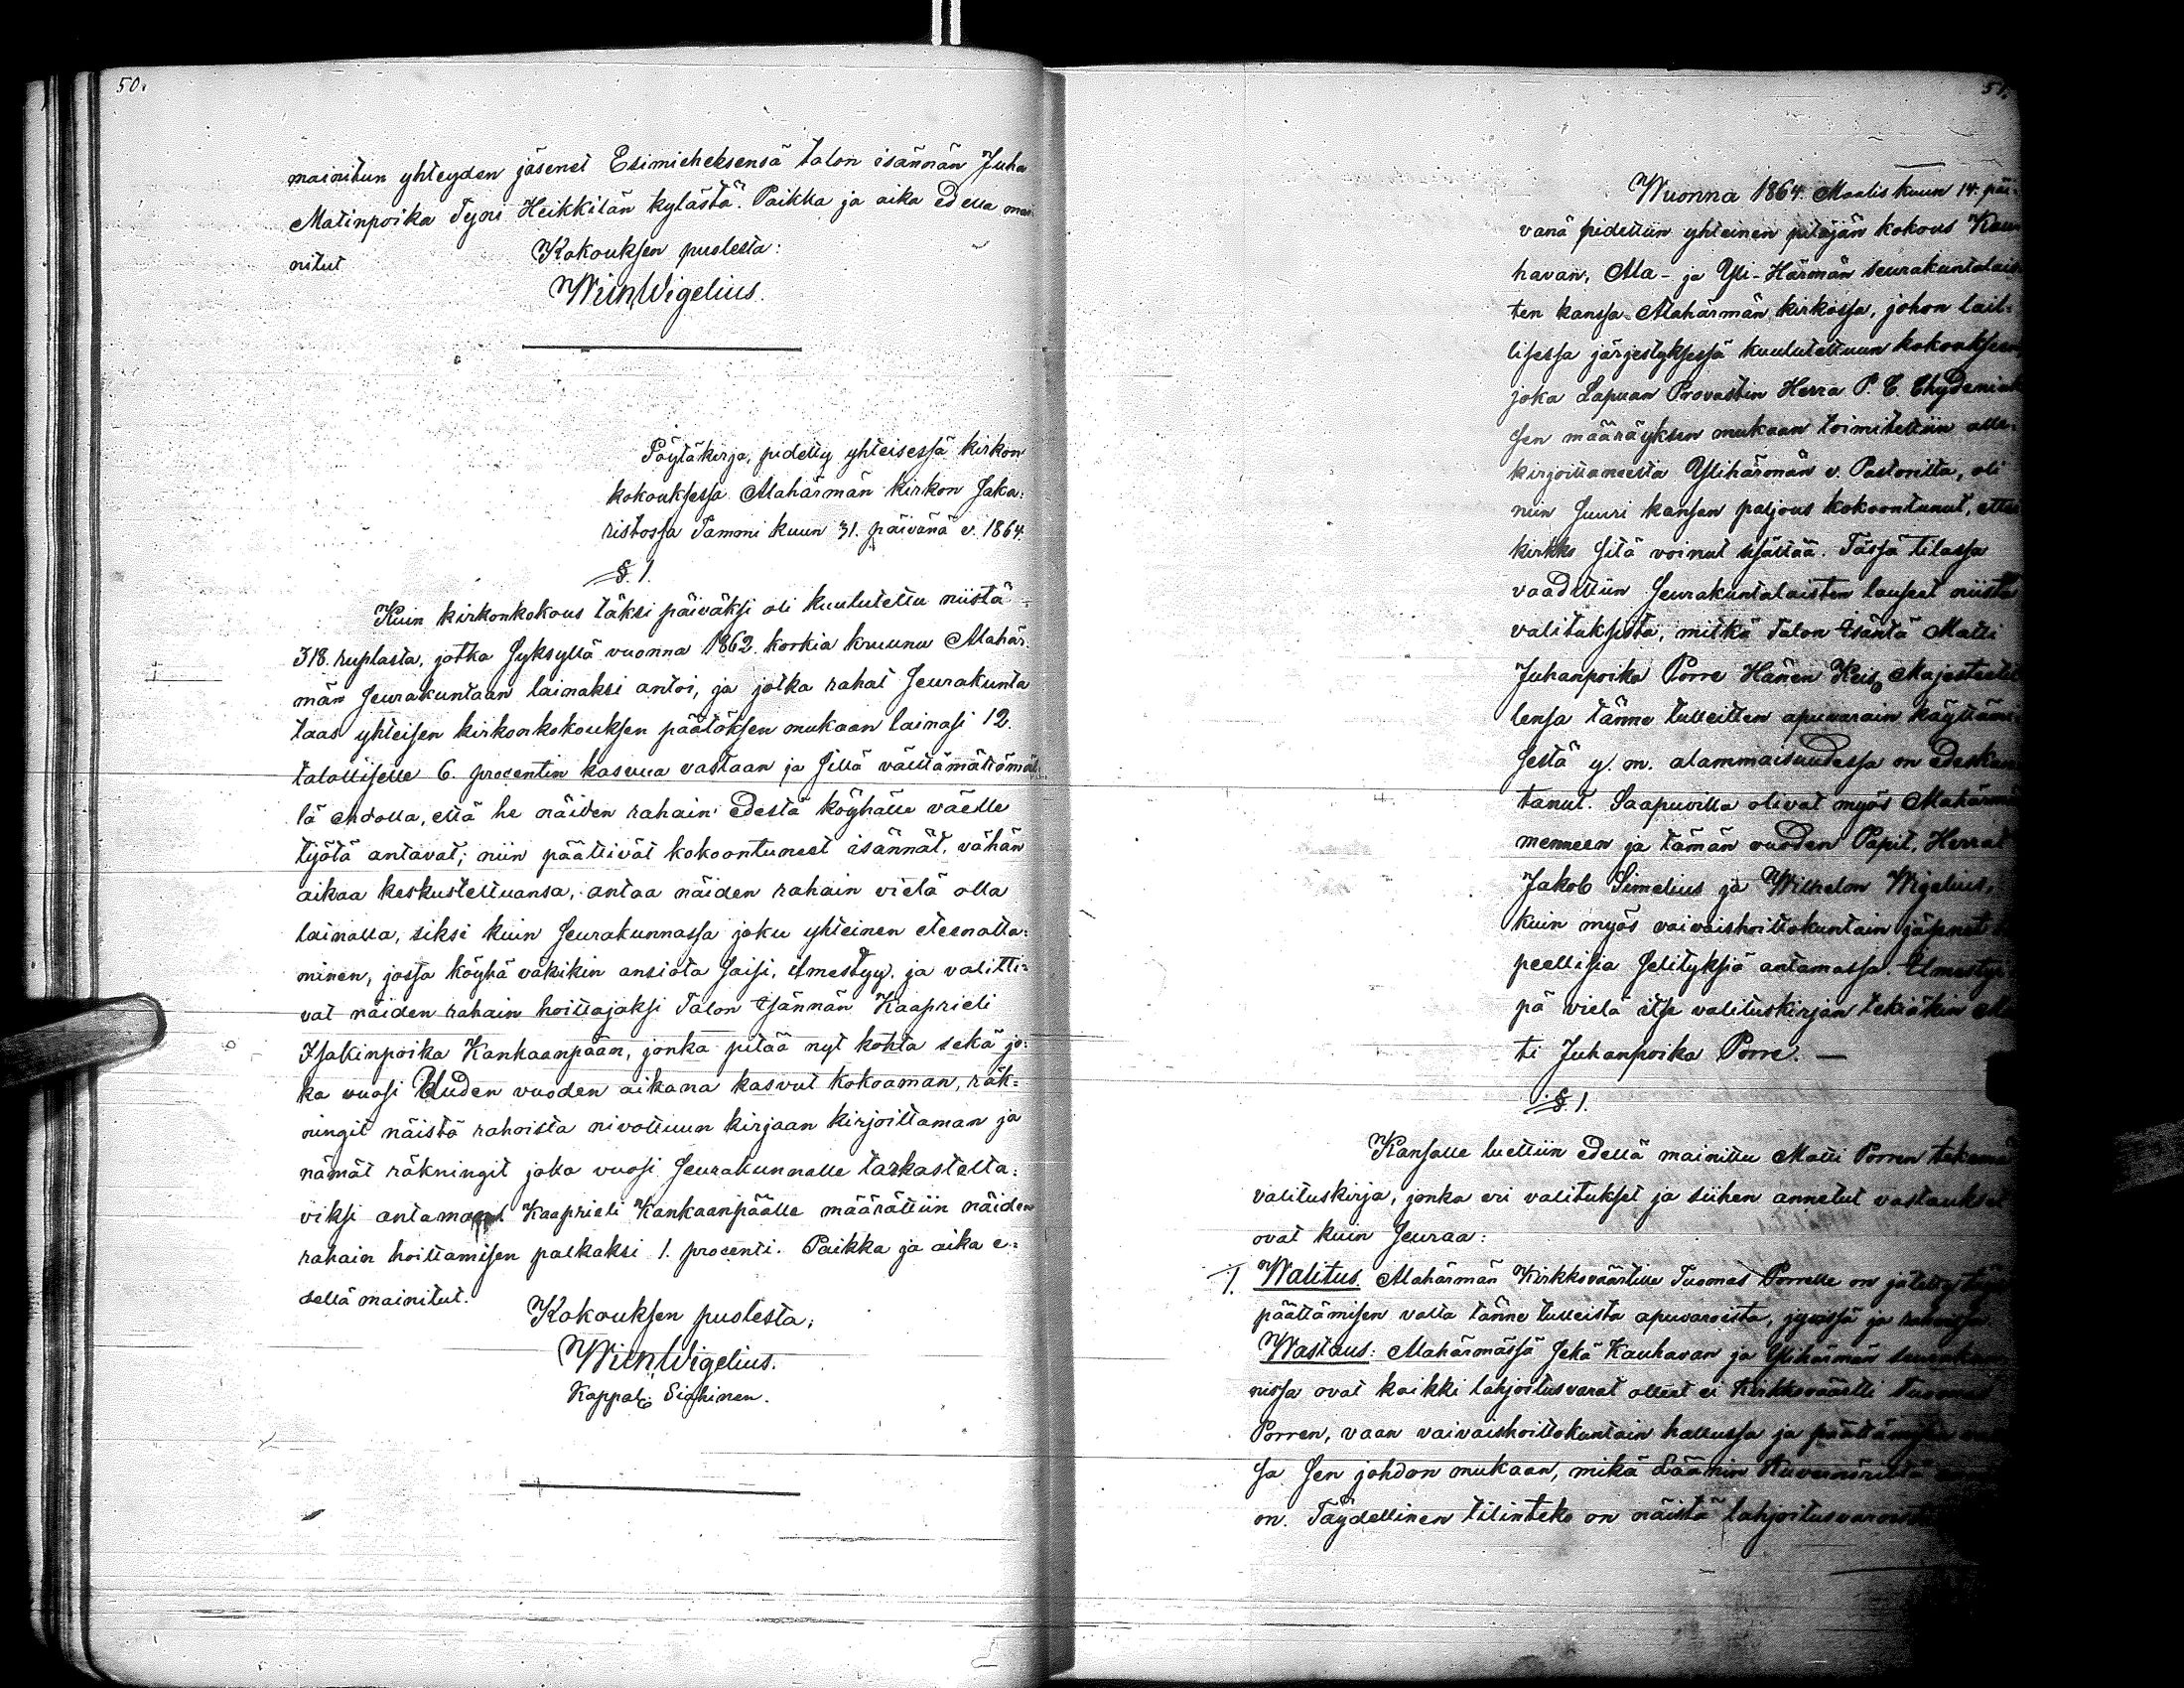 50.
mainitun yhteyden jäsenet Esimieheksensä talon isännän Juha
Matinpoika Tyni Heikkilän kylästä. Paikka ja aika edellä mai-
nitut
Kokouksen puolesta:
Wilh Wigelius.
Pöytäkirja, pidetty yhteisessä kirkon
kokouksessa Alahärmän kirkon Saka-
ristossa Tammi kuun 31. päivänä v. 1864.
§. 1.
Kuin kirkonkokous täksi päiväksi oli kuulutettu niistä
318. ruplasta, jotka Syksyllä vuonna 1862. korkia kruunu Alahär-
män Seurakuntaan lainaksi antoi, ja jotka rahat Seurakunta
taas yhteisen kirkonkokouksen päätöksen mukaan lainasi 12.
talolliselle 6. procentin kasvua vastaan ja sillä välttämättömäl-
lä ehdolla, että he näiden rahain edestä köyhälle väelle
työtä antavat; niin päättivät kokoontuneet isännät, vähän
aikaa keskusteltuansa, antaa näiden rahain vielä olla
lainalla, siksi kuin Seurakunnassa joku yhteinen eteenotta-
minen, jossa köyhä väkikin ansiota saisi, ilmestyy. ja valitti-
vat näiden rahain hoittajaksi Talon Isännän Kaaprieli
Isakinpoika Kankaanpään, jonka pitää nyt kohta sekä jo-
ka vuosi Uuden vuoden aikana kasvut kokoaman, räk-
ningit näistä rahoista nivottuun kirjaan kirjoittaman ja
nämät räkningit joka vuosi Seurakunnalle tarkastelta-
viksi antaman Kaaprieli Kankaanpäälle määrättiin näiden
rahain hoittamisen palkaksi 1. procenti. Paikka ja aika e-
dellä mainitut.
Kokouksen puolesta;
Wilh Wigelius.
Kappal. Siahinen.
51.
Wuonna 1864. Maalis kuun 14. päi-
vänä pidettiin yhteinen pitäjän kokous Kau
havan, Ala- ja Yli-Härmän seurakuntalais
ten kanssa Alahärmän kirkossa, johon lail-
lisessa järjestyksessä kuulutettuun kokouksee
joka Lapuan Provastin Herra P. C. Chydeniuk
sen määräyksen mukaan toimitettiin alle-
kirjoittaneesta Ylihärmän v. Pastorilta, oli
niin suuri kansan paljous kokoontunut, ettei
kirkko sitä voinut sisältää. Tässä tilassa
vaadittiin Seurakuntalaisten lauseet niistä
valituksista, mitkä Talon Isäntä Matti
Juhanpoika Porre Hänen Keis. Majesteetil
lensa tänne tulleitten apuvarain käyttämi
sestä y. m. alammaisuudessa on edeskan
tanut. Saapuvilla olivat myös Alahärmä
menneen ja tämän vuoden Papit, Herrat
Jakob Simelius ja Wilhelm Wigelius,
kuin myös vaivaishoittokuntain jäsenet
peellisia selityksiä antamassa. Ilmestyi
pä vielä itse valituskirjan tekiäkin Ma
ti Juhanpoika Porre. —
§. 1.
Kansalle luettiin edellä mainittu Matti Porren tekemä
valituskirja, jonka eri valitukset ja siihen annetut vastaukset
ovat kuin seuraa:
1. Walitus. Alahärmän Kirkkoväärtille Tuomas Porrelle on jätetty
päättämisen valta tänne tulleista apuvaroista, jyvissä ja rahoissa.
Wastaus: Alahärmässä sekä Kauhavan ja Ylihärmän seurakun
nissa ovat kaikki lahjoitusvarat olleet ei Kirkkoväärtti Tuomas
Porren, vaan vaivaishoittokuntain hallussa ja päättämisen
sa sen johdon mukaan, mikä Läänin
on. Täydellinen tilinteko on näistä lahjoitusvaroista